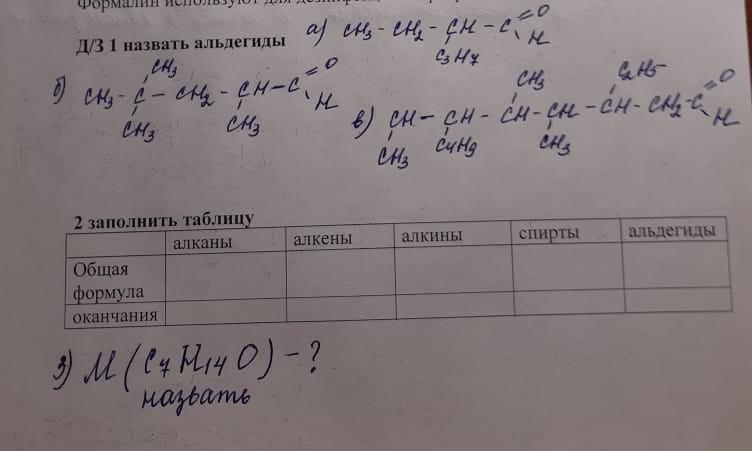 Формалин используют для
Д/З 1 назвать альдегиды
а) CH3 - CH2 - CH - C = O
H
C3H7
б) CH3 - C - CH2 - CH - C = O
CH3
H
CH3
CH3
в) CH - CH - CH - CH - CH - CH2 - C = O
CH3
C2H5
H
CH3
C4H9
CH3
2 заполнить таблицу
алканы алкены алкины спирты альдегиды
Общая
формула
оканчания
3) M (C7H14O) - ?
назвать